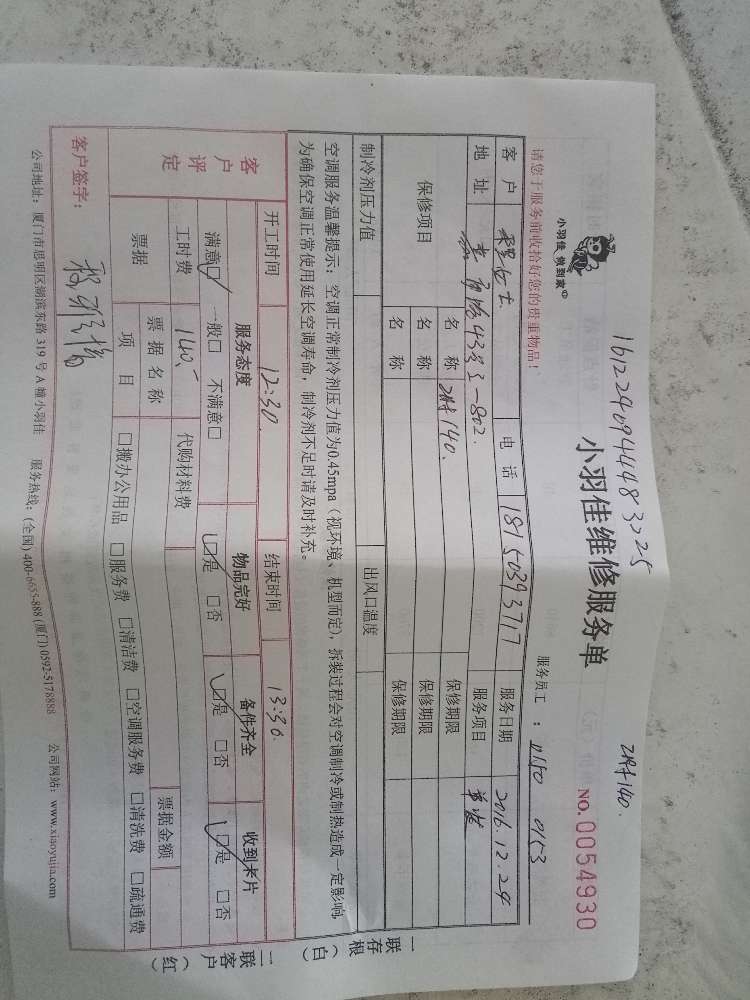 1612240944483225
2时140.
小羽佳 做到家
小羽佳维修服务单
NO.0054930
请您于服务前收拾好您的贵重物品！
服务员工 ： 0150 0153
客 户 女士 电 话 18150393717 服务日期 2016.12.24
地 址 路43号 -802. 服务项目
保修项目 名 称 2时140. 保修期限
名 称 保修期限
名 称 保修期限
制冷剂压力值 出风口温度
空调服务温馨提示：空调正常制冷剂压力值为0.45mpa（视环境、机型而定），拆装过程会对空调制冷或制热造成一定影响，
为确保空调正常使用延长空调寿命，制冷剂不足时请及时补充。
开工时间 12:30. 结束时间 13:30.
客户评定 服务态度 物品完好 备件齐全 收到卡片
满意☑ 一般□ 不满意□ ☑是 □否 ☑是 □否 ☑是 □否
工时费 140. 代购材料费
票据 票据名称 票据金额
项 目 □搬办公用品 □服务费 □清洁费 □空调服务费 □清洗费 □疏通费
客户签字：
公司地址：厦门市思明区湖滨东路 319 号 A 幢小羽佳 服务热线：(全国) 400-6655-888 (厦门) 0592-5178888 公司网站：www.xiaoyujia.com
一联存根（白）
二联客户（红）